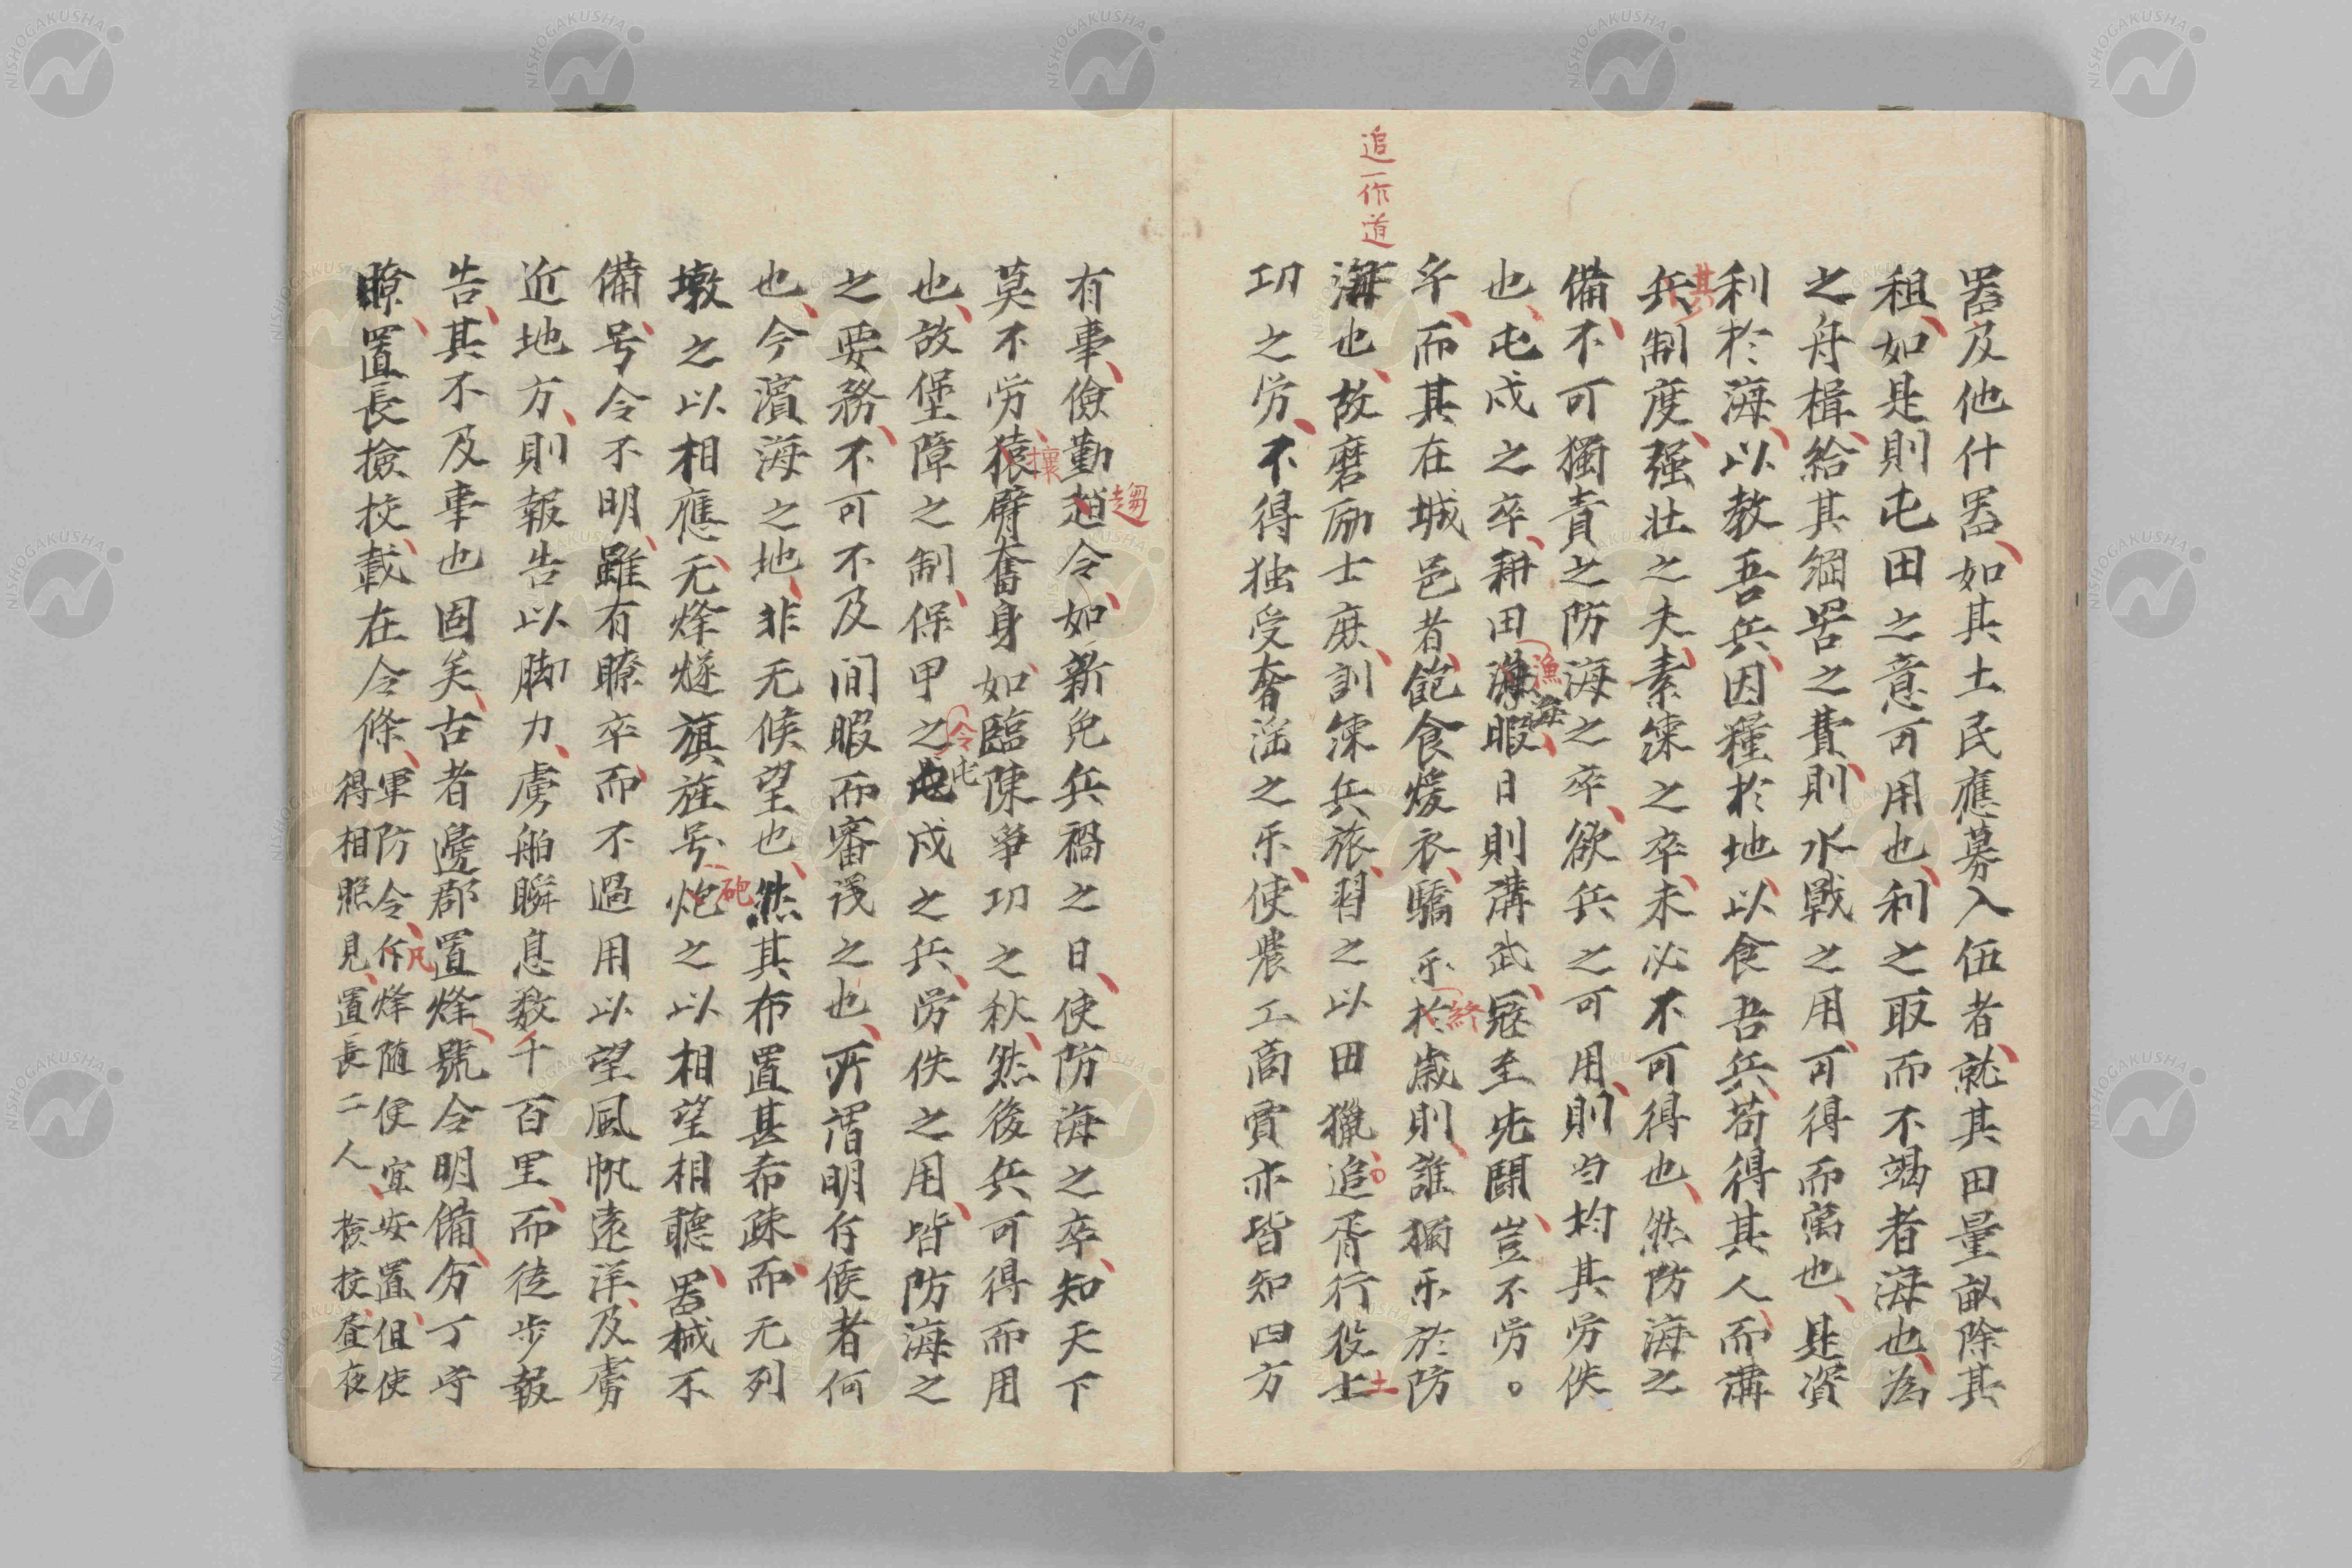 器及他什器、如其土民應募入伍者、就其田量畝除其
租、如是則屯田之意可用也、利之取而不竭者海也、為
之舟楫、給其綱罟之費、則水戰之用、可得而寓也、是資
利於海、以教吾兵、因糧於地、以食吾兵、苟得其人、而講
兵制度、强壮之夫、素練之卒、未必不可得也、然防海之
其
備、不可獨責之防海之卒、欲兵之可用、則当均其労佚
也、屯戍之卒、耕田漁暇、日則講武、寇至先鬪、豈不労。
漁海
乎、而其在城邑者、飽食煖衣、驕乐於歳則、誰獨乐於防
終
追一作道
海也、故磨励士庶、訓練兵旅、習之以田獵、追胥行役士
土
功之労、不得独受奢淫之乐、使農工商賈亦皆知四方
有事、儉勤趙令、如新免兵禍之日、使防海之卒、知天下
趨
莫不労、猿臂奮身、如臨陳爭功之秋、然後兵可得而用
攘
也、故堡障之制、保甲之屯戍之兵、労佚之用、皆防海之
令屯
之要務、不可不及间暇而審議之也、所谓明斥候者何
也、今濱海之地、非无候望也、然其布置甚希疎、而无列
墩之以相應、无烽燧旗旌号炮之以相望相聽、器械不
砲
備、号令不明、雖有瞭卒、而不過用以望風帆遠洋、及虜
近地方、則報告以脚力、虜舶瞬息数千百里、而徒步報
告、其不及事也固矣、古者邊郡置烽、號令明備、分丁守
瞭、置長撿挍、載在令條、
軍防令、斥烽随便宜安置、但使
凡
得相照見、置長二人、撿挍昼夜